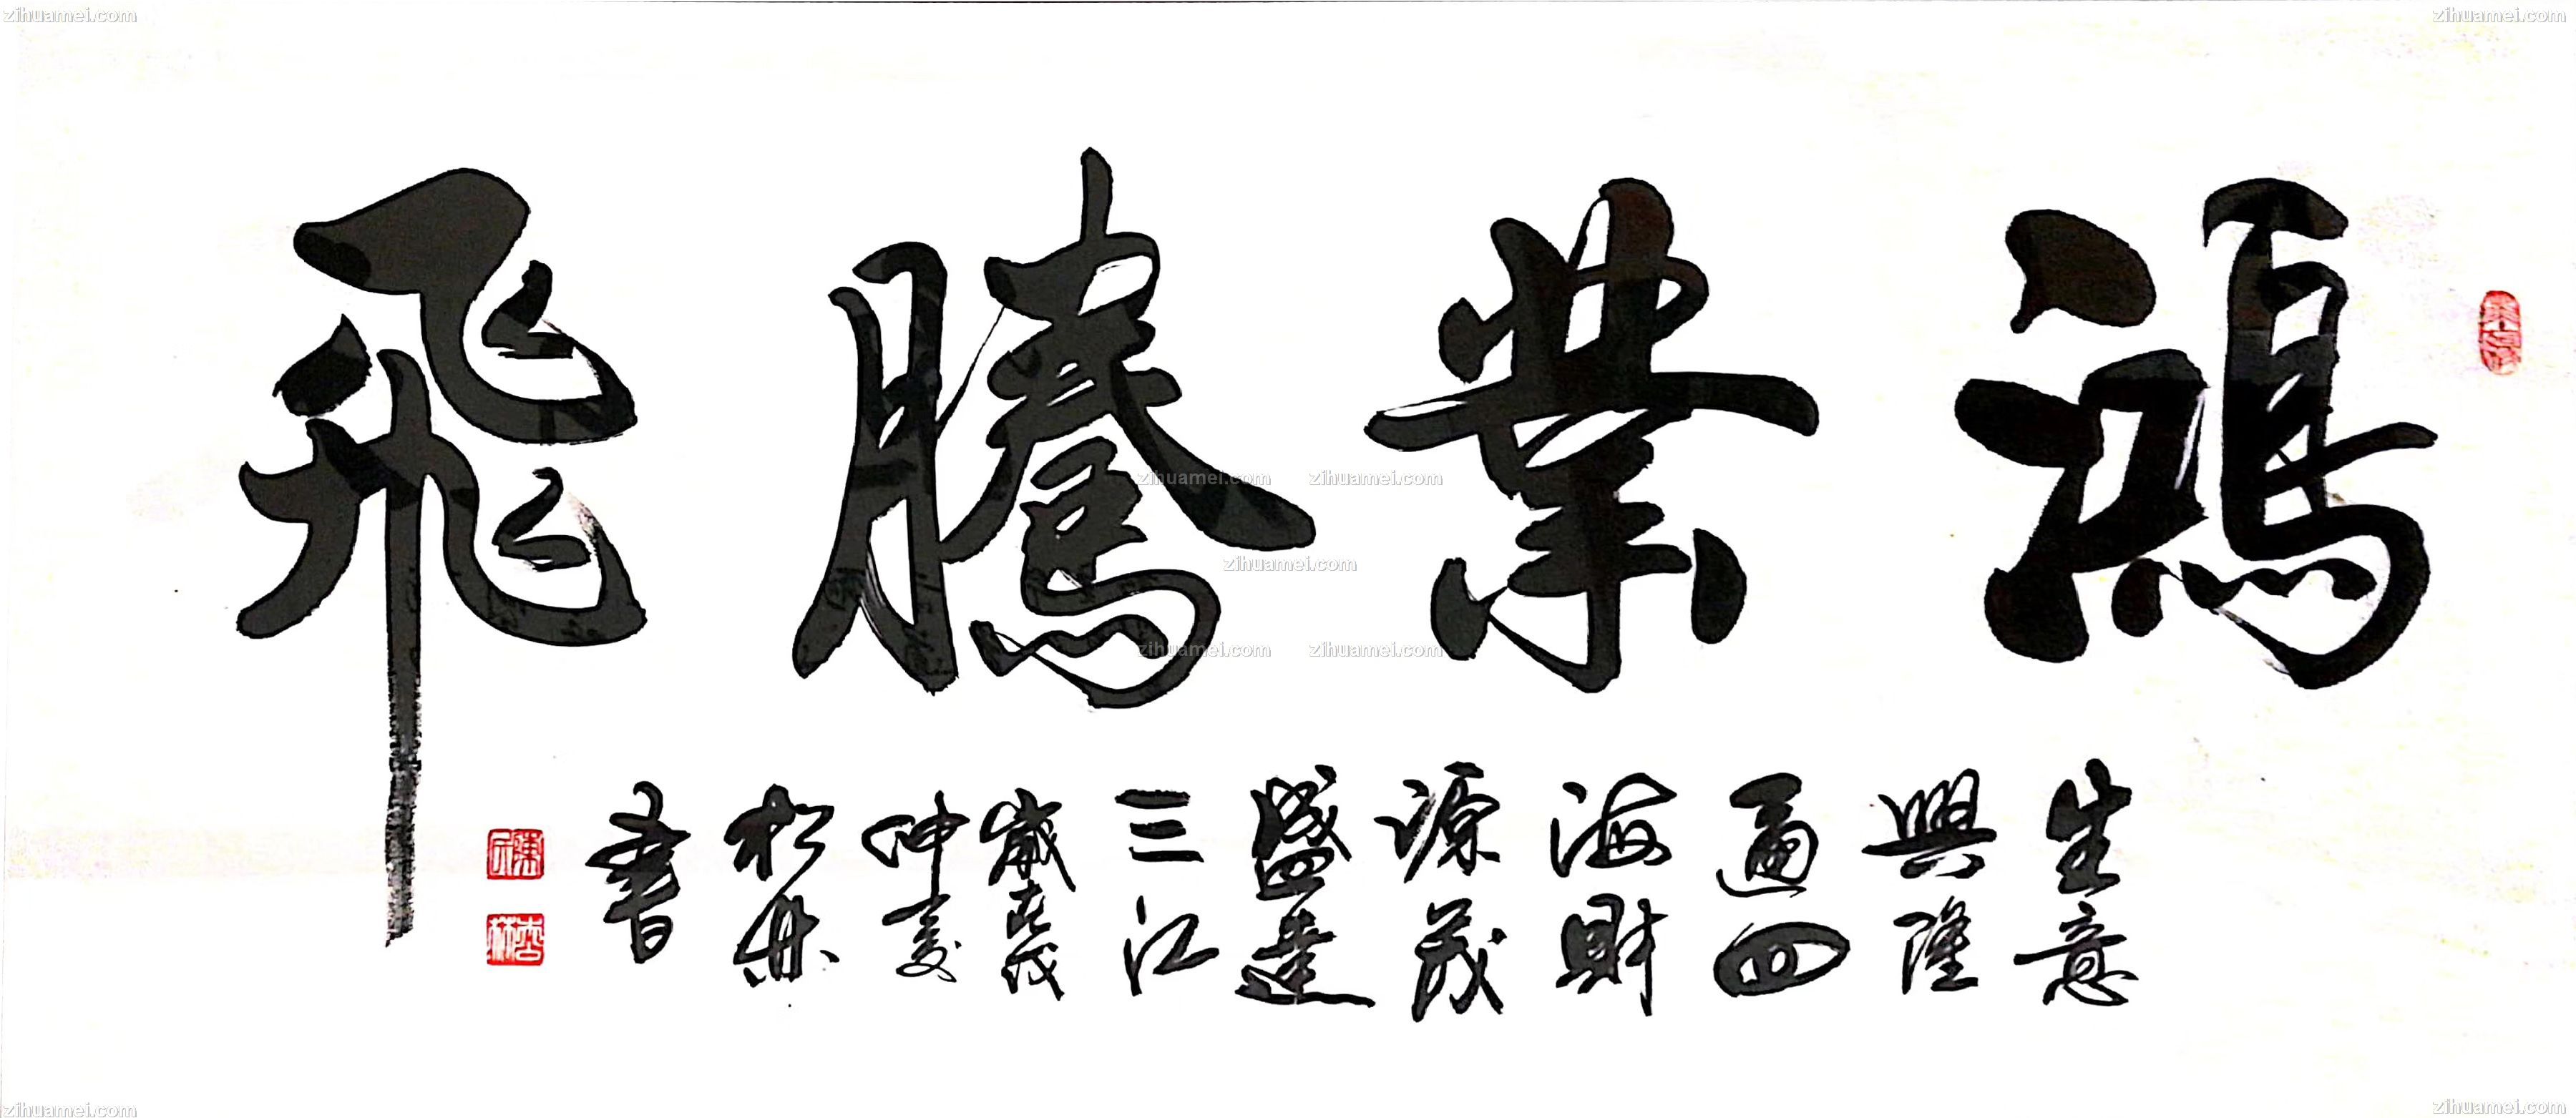 鴻業騰飛
生意
興隆
通四
海財
源茂
盛達
三江
歲在
仲夏
松
書
zihuamei.com
zihuamei.com
zihuamei.com
zihuamei.com
zihuamei.com
zihuamei.com
zihuamei.com
zihuamei.com
zihuamei.com